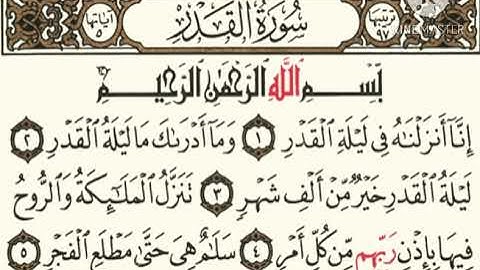 ترتيبها ٩٧ سُورَةُ الْقَدْرِ آياتها ٥
بِسْمِ اللَّهِ الرَّحْمَٰنِ الرَّحِيمِ
إِنَّآ أَنزَلْنَٰهُ فِى لَيْلَةِ ٱلْقَدْرِ ١ وَمَآ أَدْرَىٰكَ مَا لَيْلَةُ ٱلْقَدْرِ ٢
لَيْلَةُ ٱلْقَدْرِ خَيْرٌ مِّنْ أَلْفِ شَهْرٍ ٣ تَنَزَّلُ ٱلْمَلَٰٓئِكَةُ وَٱلرُّوحُ
فِيهَا بِإِذْنِ رَبِّهِم مِّن كُلِّ أَمْرٍ ٤ سَلَٰمٌ هِىَ حَتَّىٰ مَطْلَعِ ٱلْفَجْرِ ٥